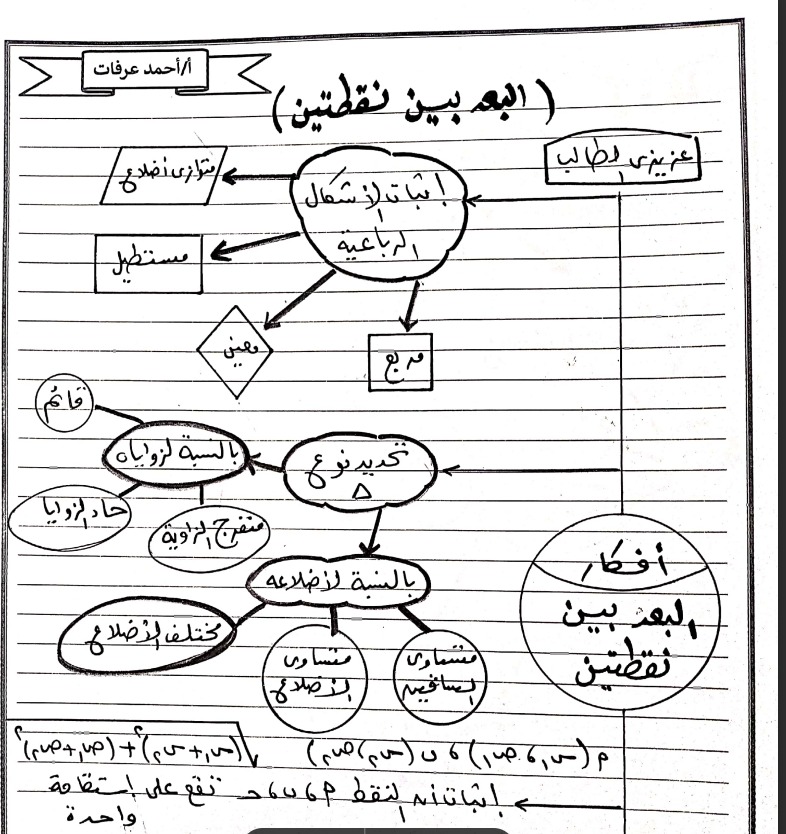 أ/أحمد عرفات
(البعد بين نقطتين)
عزيزى الطالب
إثبات الأشكال
الرباعية
متوازى أضلاع
مستطيل
معين
مربع
تحديد نوع
△
بالنسبة لزواياه
قائم
حاد الزوايا
منفرج الزاوية
بالنسبة لأضلاعه
مختلف الأضلاع
متساوى
الأضلاع
متساوى
الساقين
أفكار
البعد بين
نقطتين
م (س١، ص١) ، ن (س٢، ص٢) √(س١+س٢)²+(ص١+ص٢)²
إثبات أن النقط م، ن، ح تقع على إستقامة
واحدة